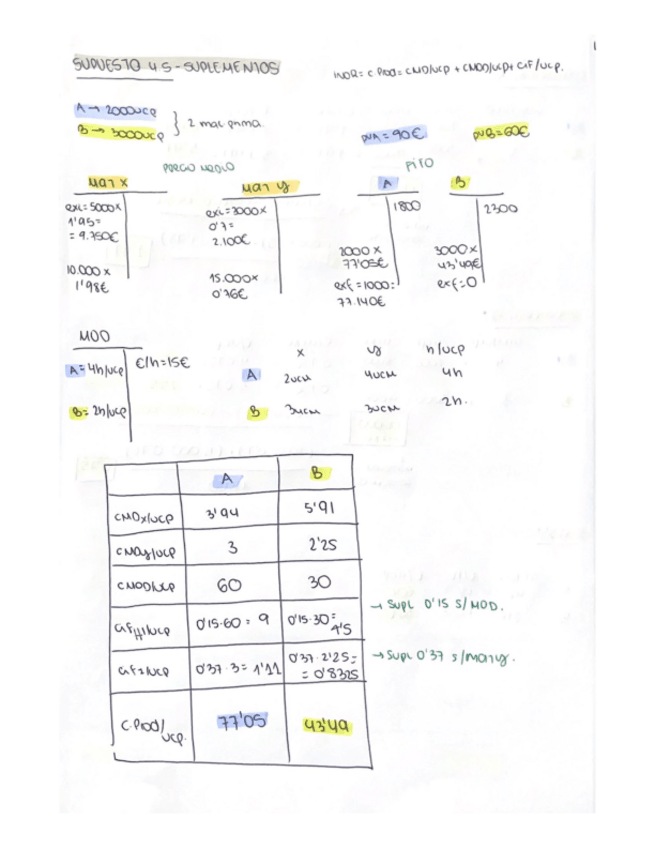 SUPUESTO 4 5 - SUPLEMENTOS
INDR = C PROD = CMD/UCP + CMOD/UCP + CIF/UCP.
A → 2000UCP
B → 3000UCP
} 2 mat prima.
PVA = 90€
PVB = 60€
PRECIO MEDIO
FIFO
MAT X
MAT Y
A
B
exi = 5000 x
1'95 =
= 9.750€
10.000 x
1'98€
exi = 3000 x
0'7 =
2.100€
15.000 x
0'76€
1800
2000 x
77'05€
exf = 1000:
77.140€
2300
3000 x
43'49€
exf = 0
MOD
A = 4h/ucp
€/h = 15€
B = 2h/ucp
x y h/ucp
A 2ucm 4ucm 4h
B 3ucm 3ucm 2h.
A B
CMDx/UCP 3'94 5'91
CMDy/UCP 3 2'25
CMOD/UCP 60 30
CIFH/UCP 0'15·60 = 9 0'15·30 = 4'5
→ Supl 0'15 s/MOD.
CIF2/UCP 0'37·3 = 1'11 0'37·2'25 = = 0'8325
→ Supl 0'37 s/mat y.
C.Prod/UCP. 77'05 43'49